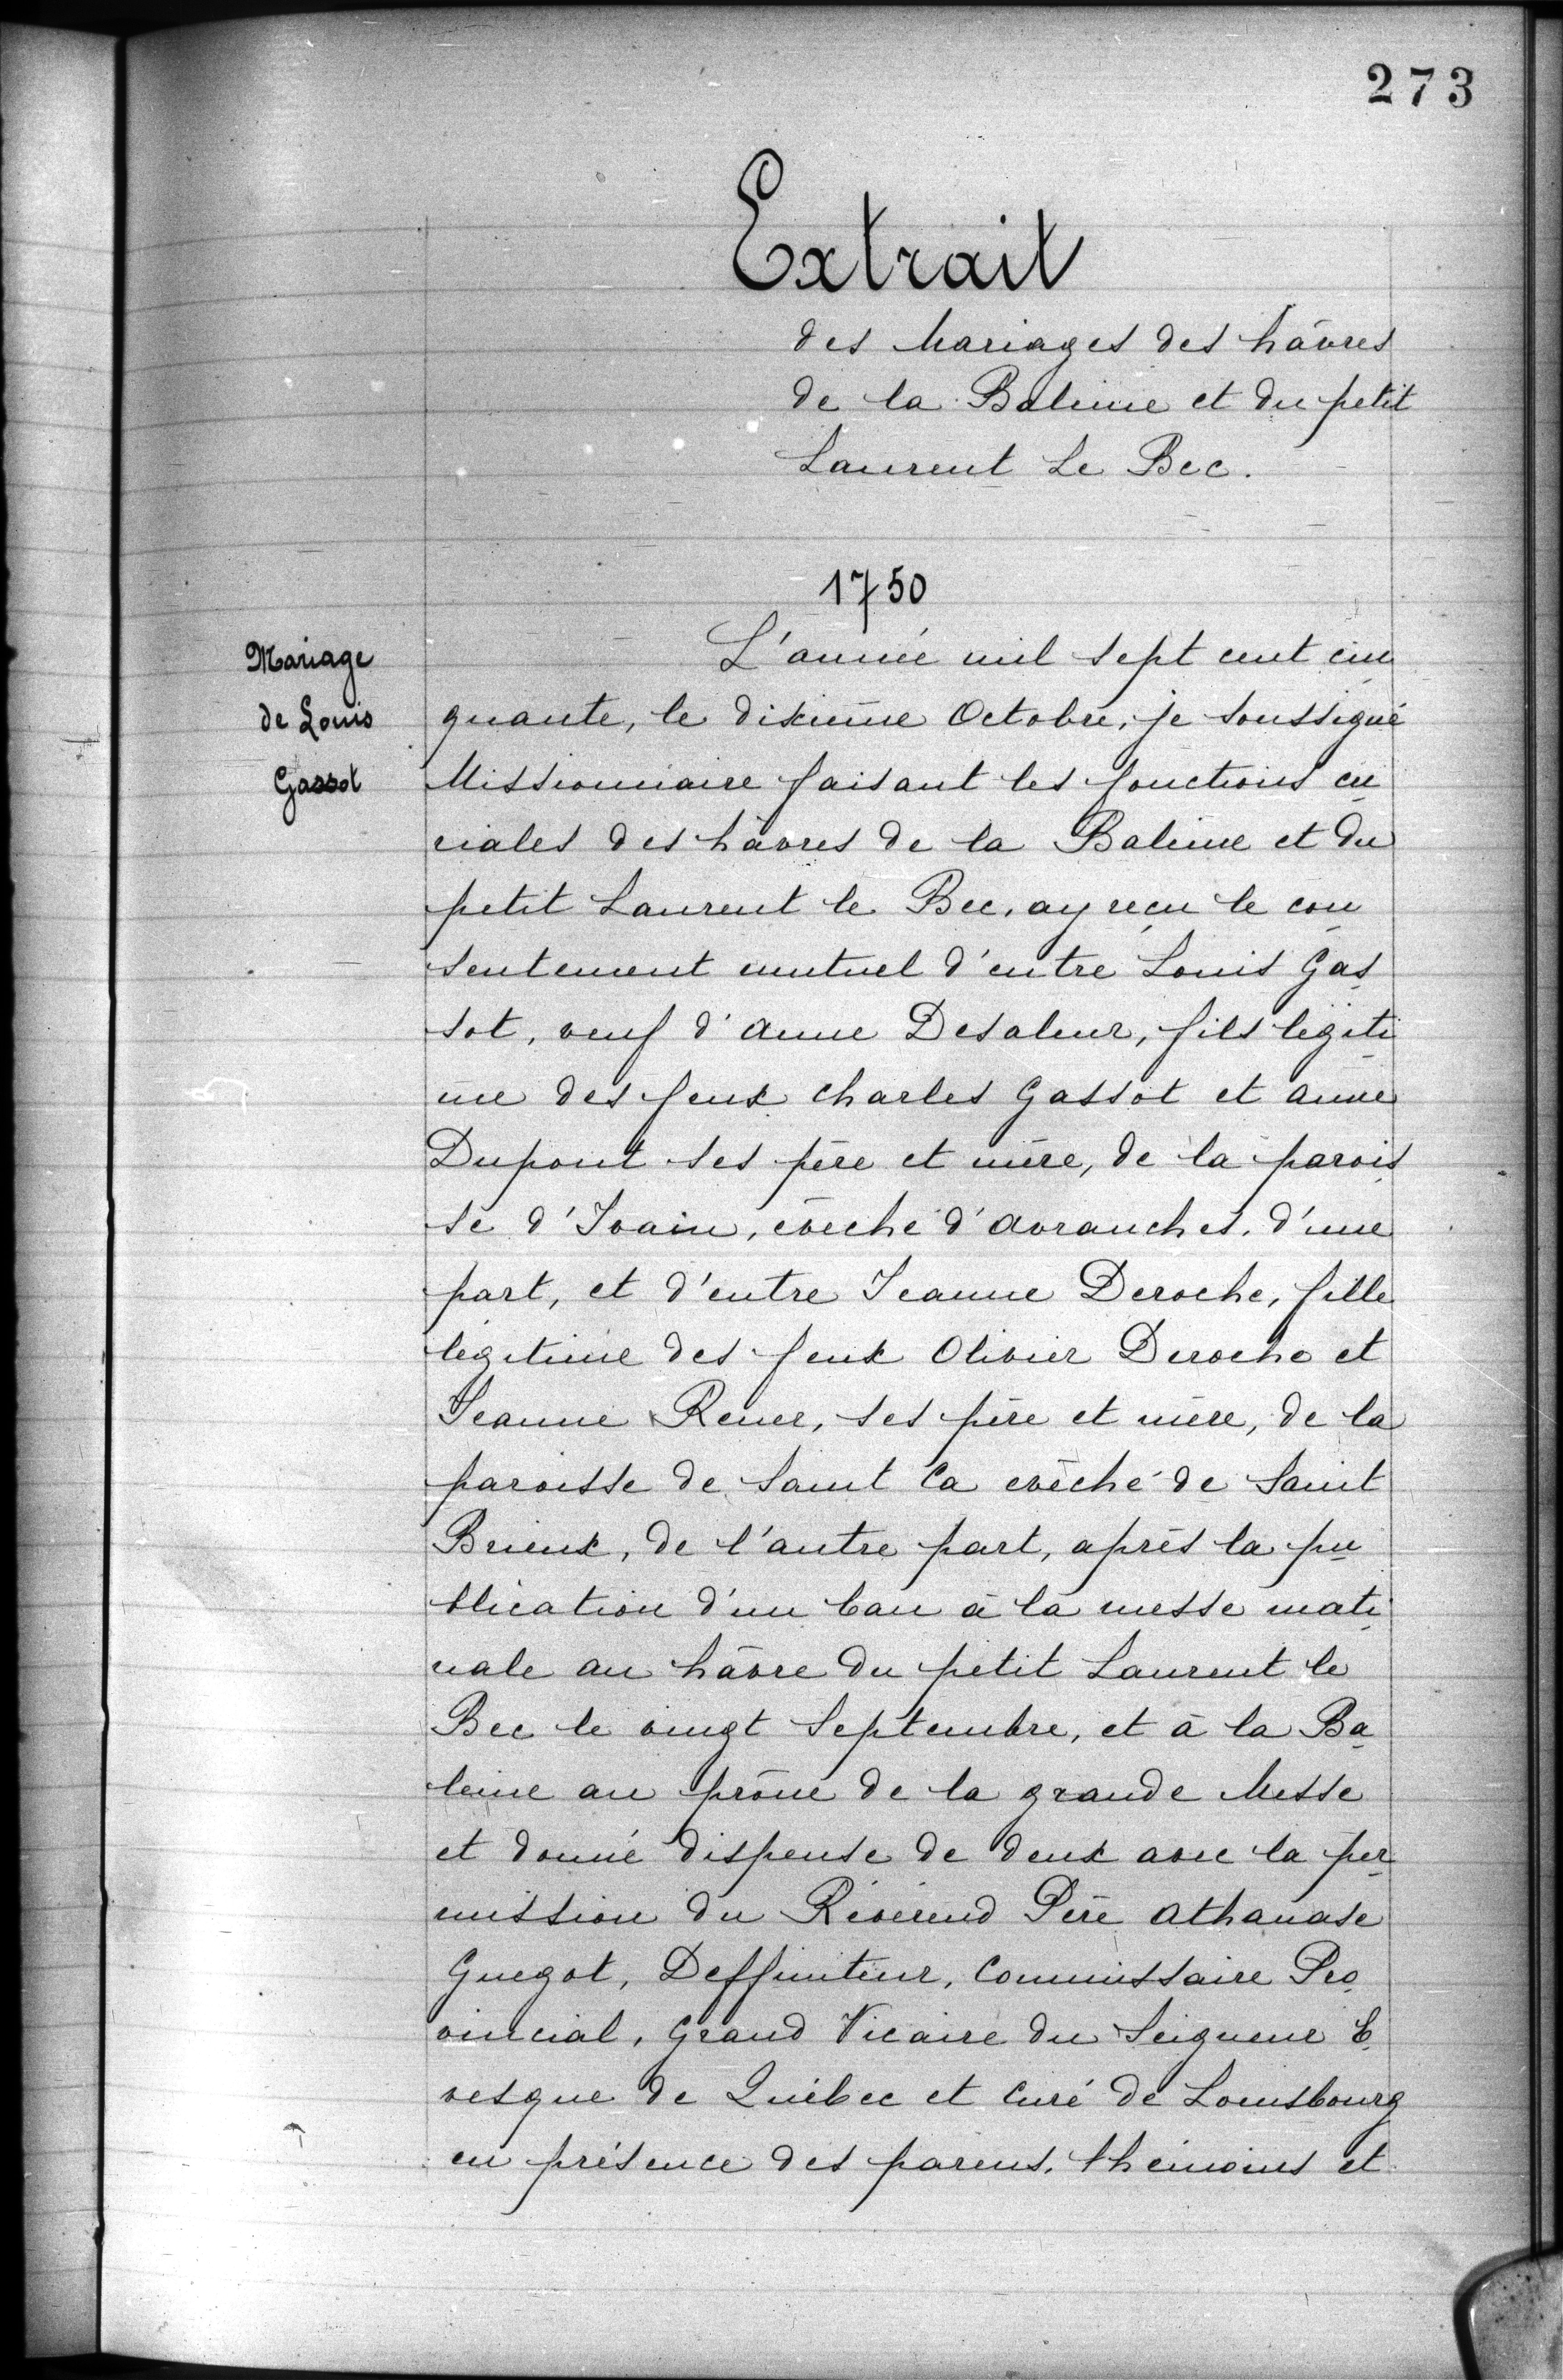 273
Extrait
des Mariages des hâvres
de la Baleine et du petit
Laurent Le Bec.
1750
Mariage
de Louis
Gassot
L'année mil sept cent cin
quante, le dixième Octobre, je soussigné
Missionnaire faisant les fonctions cu
riales des hâvres de la Baleine et du
petit Laurent le Bec, ay reçu le con
sentement mutuel d'entre Louis Gas
sot, veuf d'Anne Desaleur, fils légiti
me des feux Charles Gassot et Anne
Dupont ses père et mère, de la parois
se d'Ivain, évêché d'Avranches, d'une
part, et d'entre Jeanne Deroche, fille
légitime des feux Olivier Deroche et
Jeanne Rener, ses père et mère, de la
paroisse de Saint Ca evêché de Saint
Brieux, de l'autre part, après la pu
blication d'un ban à la messe mati
nale au hâvre du petit Laurent le
Bec le vingt Septembre, et à la Ba
leine au prône de la grande Messe
et donné dispense de deux avec la per
mission du Révérend Père Athanase
Guegot, Deffiniteur, Commissaire Pro
vincial, Grand Vicaire du Seigneur E
vesque de Québec et Curé de Louisbourg
en présence des parens, thémoins et